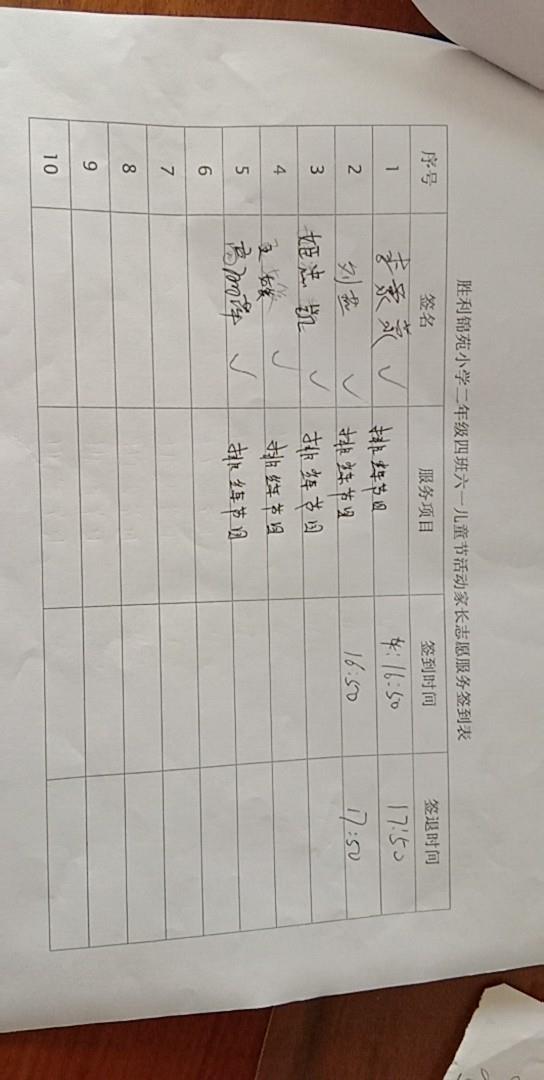 胜利锦苑小学二年级四班六一儿童节活动家长志愿服务签到表
序号 签名 服务项目 签到时间 签退时间
1 排练节目 16:50 17:50
2 刘燕 排练节目 16:50 17:50
3 姬志凯 排练节目
4 排练节目
5 排练节目
6
7
8
9
10